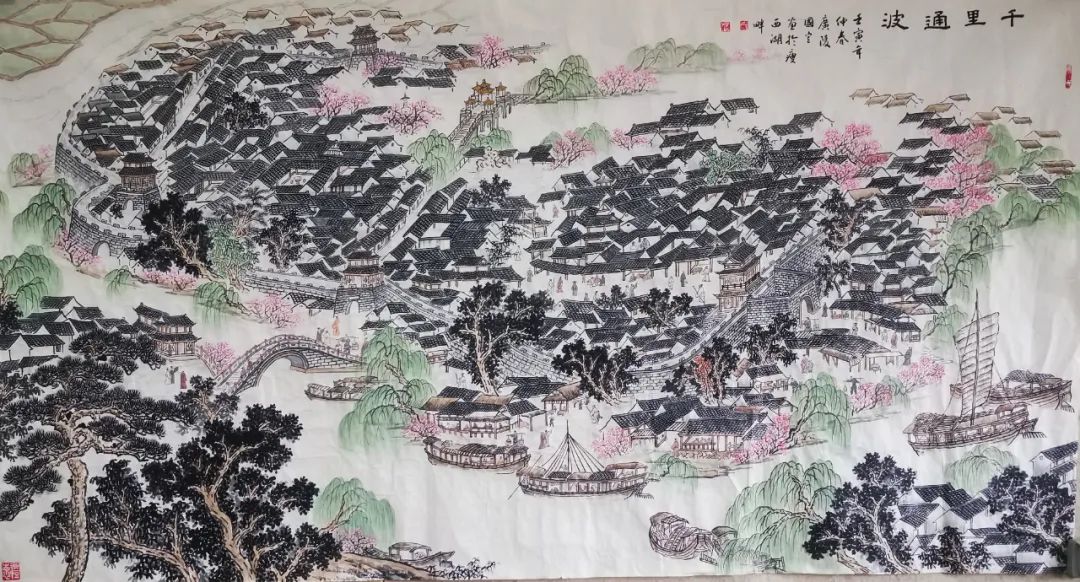 千里通波
壬寅年
仲春
廣陵
國
於瘦
西湖
畔